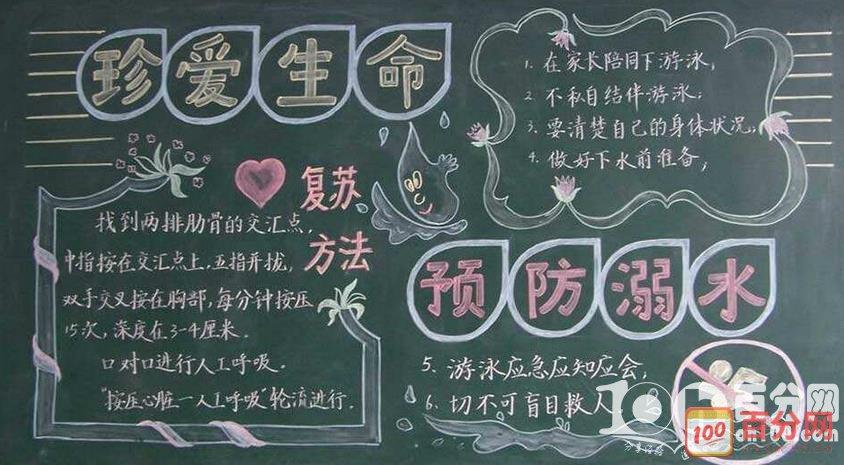 珍爱生命
复苏
方法
找到两排肋骨的交汇点,
中指按在交汇点上,五指并拢,
双手交叉按在胸部,每分钟按压
15次,深度在3-4厘米.
口对口进行人工呼吸.
"按压心脏一人工呼吸"轮流进行.
1. 在家长陪同下游泳,
2. 不私自结伴游泳;
3. 要清楚自己的身体状况,
4. 做好下水前准备,
预防溺水
5. 游泳应急应知应会,
6. 切不可盲目救人
百分网
100
百分网